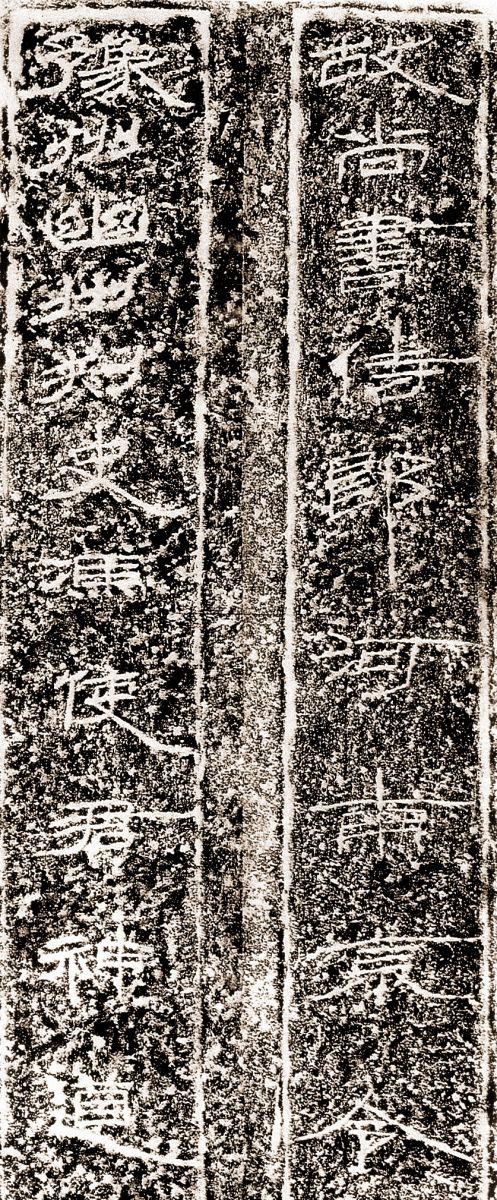 故尚書侍郎河南京令
豫州幽州刺史馮使君神道